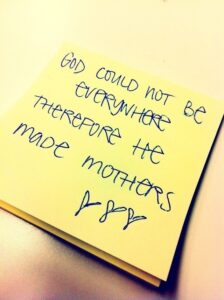 GOD COULD NOT BE
EVERYWHERE
THEREFORE HE
MADE MOTHERS